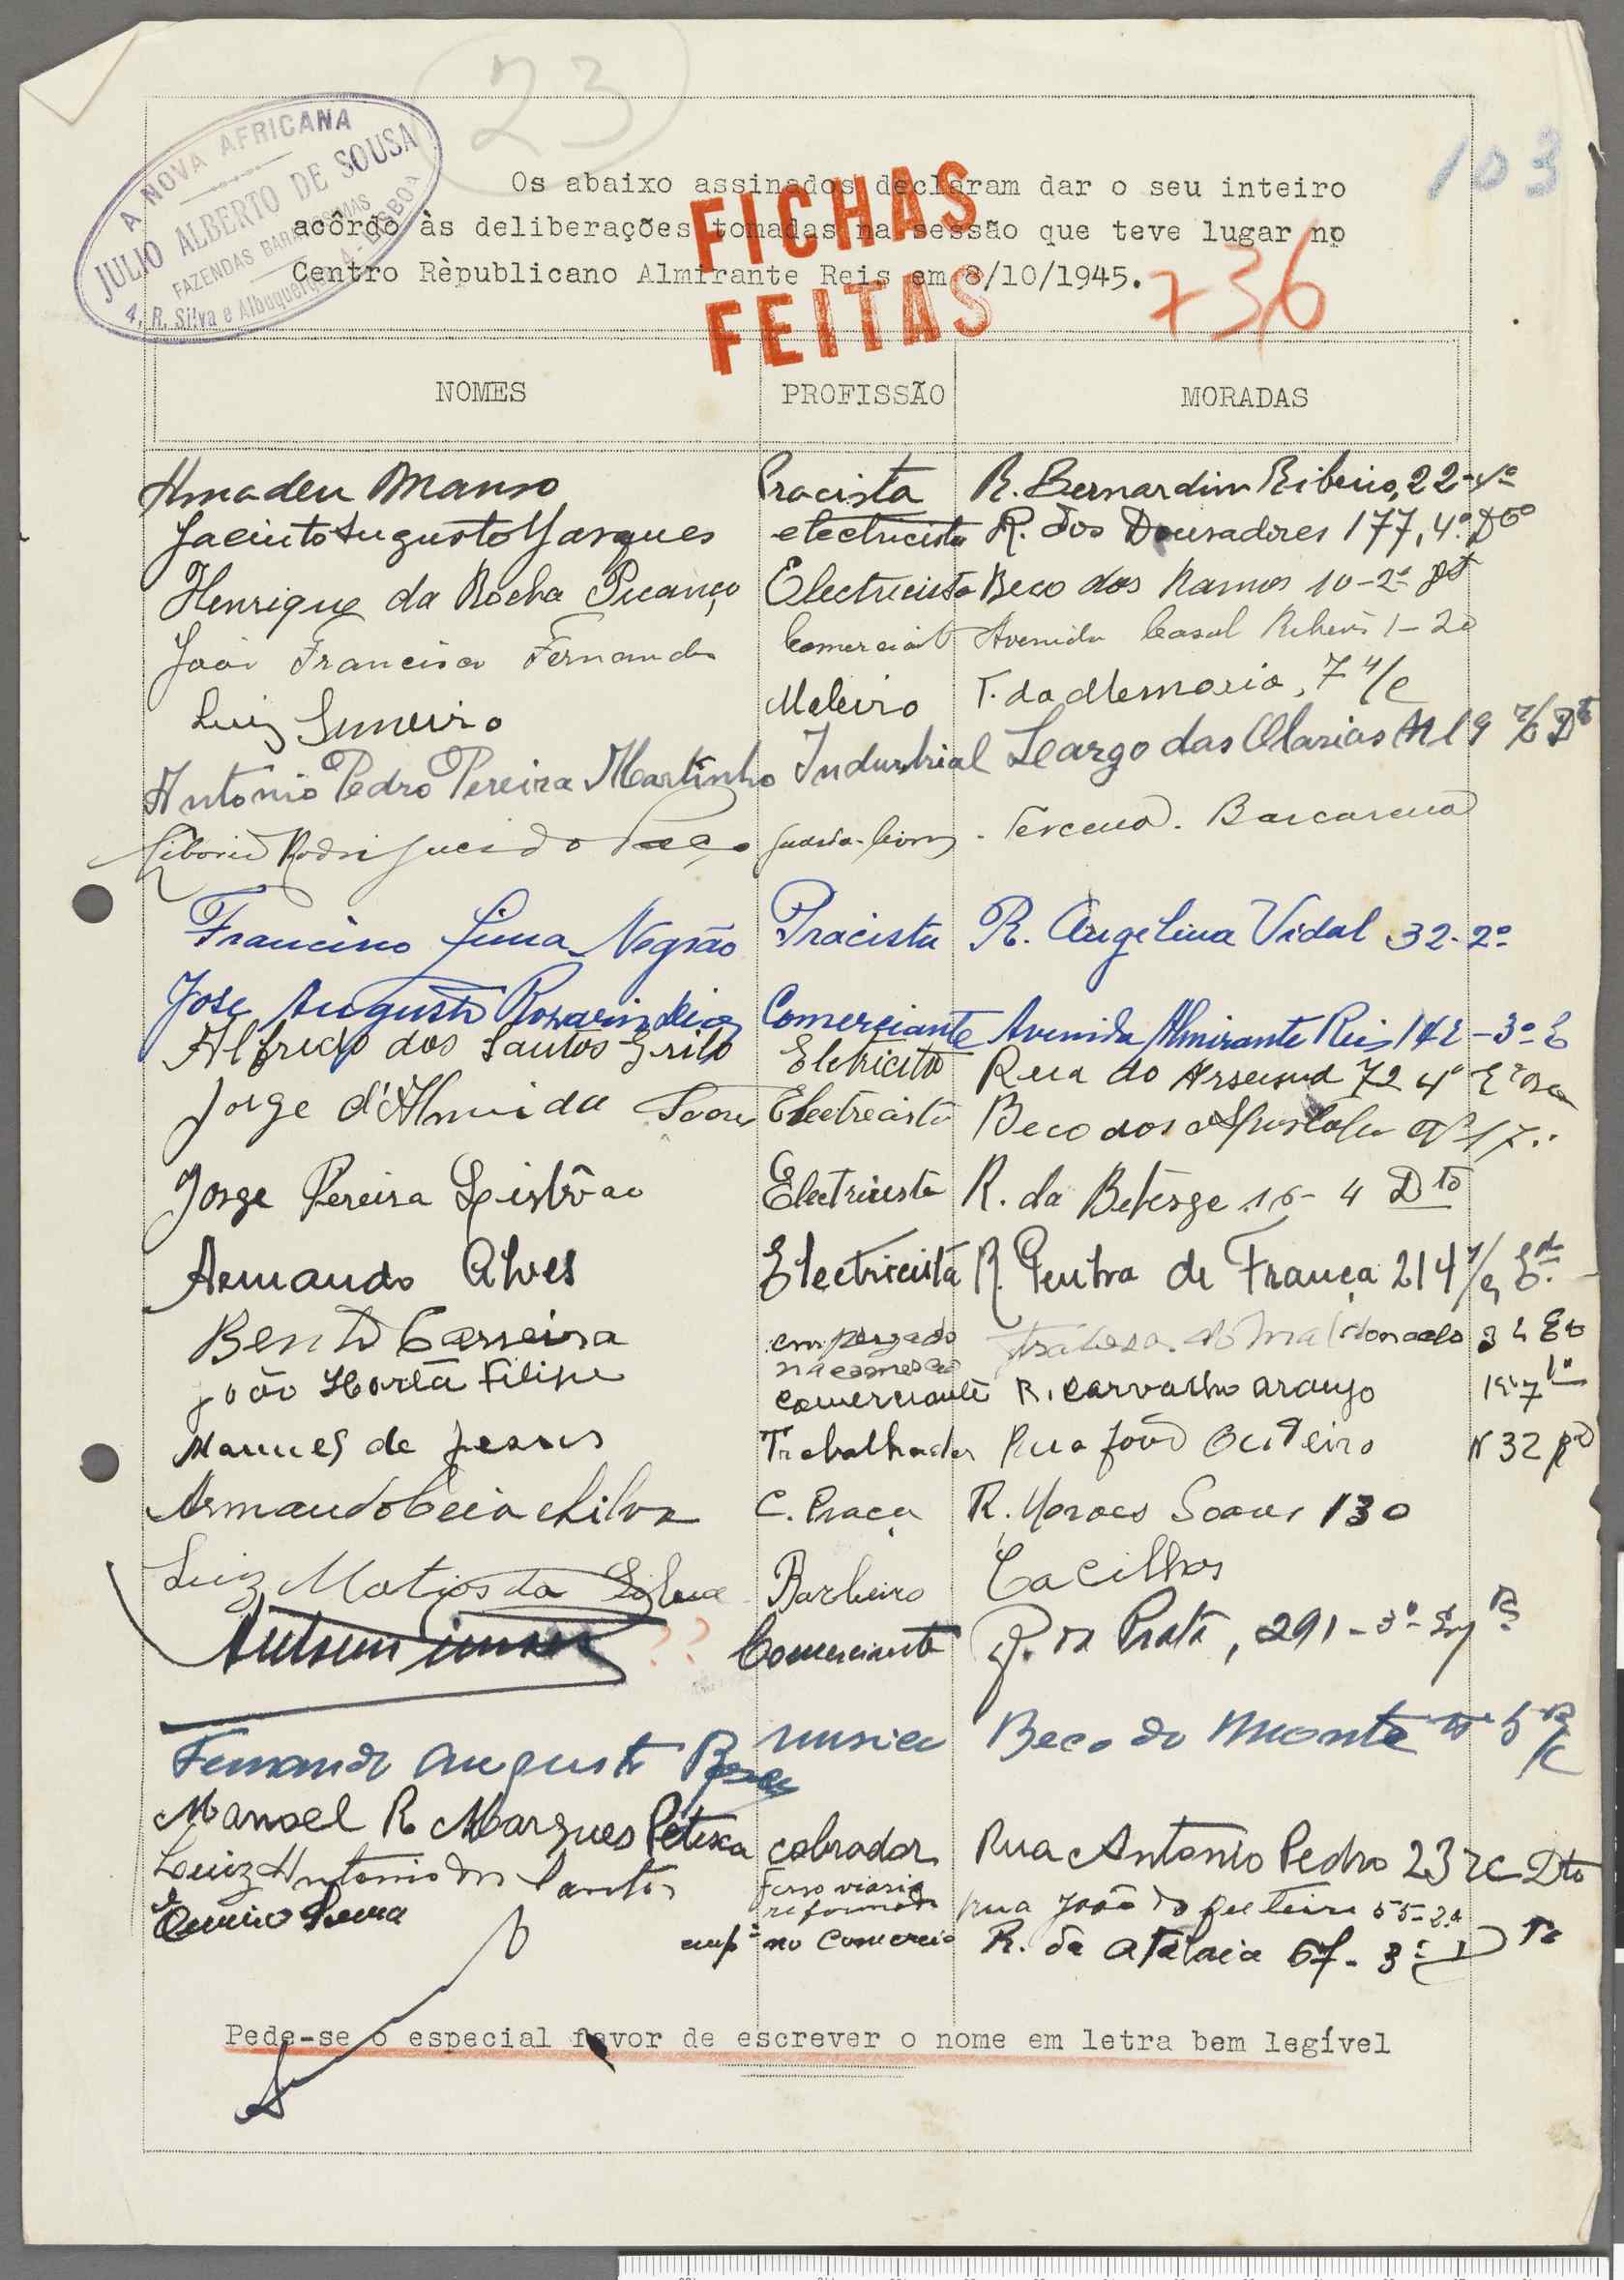 23
103
A NOVA AFRICANA
JULIO ALBERTO DE SOUSA
FAZENDAS BARATISSIMAS
4, R. Silva e Albuquerque, 4 - LISBOA
Os abaixo assinados declaram dar o seu inteiro
acôrdo às deliberações tomadas na sessão que teve lugar no
Centro Rèpublicano Almirante Reis em 8/10/1945.
FICHAS
FEITAS
736
NOMES PROFISSÃO MORADAS
Amadeu Manso Pracista R. Bernardim Ribeiro, 22-4º
Jacinto Augusto Marques electricista R. dos Douradores 177, 4º Dtº
Henrique da Rocha Picanço Electricista Beco dos Ramos 10-2º
João Francisco Fernandes Comerciante Avenida Casal Ribeiro 1-2º
Luiz T. da Memoria, 7 r/c
Antonio Pedro Pereira Martinho Industrial Largo das Olarias Nº 19 r/c Dtº
Liborio Rodrigues do Paço Guarda-livros - Tercena. Barcarena
Francisco Lima Negrão Pracista R. Angelina Vidal 32-2º
José Augusto Comerciante Avenida Almirante Reis -3º E
Alfredo dos Santos Grilo Eletricista Rua do Arsenal 72 4º
Jorge d'Almeida Soares Electricista Beco dos Apostolos nº 17
Jorge Pereira Electricista R. da Betesga 16- 4 Dto
Armando Alves Electricista R. Penha de França 214 r/c
Bento Carreira empregado no comercio travesa do Maldonado
João Horta Filipe comerciante R. Carvalho Araujo
Manuel de Jesus Trabalhador Rua João Outeiro N 32
Armando Silva C. Praça R. Moraes Soares 130
Luiz Matios da Silva Barbeiro Cacilhas
?? Comerciante R. da Prata, 291-3º
Fernando Augusto musico Beco do Monte nº 5 R/c
Manoel R Marques Peteca cobrador Rua Antonio Pedro 23 rc Dto
Luiz Antonio dos Santos Ferro viario reformado Rua João do Outeiro 55-2º
empº no Comercio R. da Atalaia 67-3º D to
Pede-se o especial favor de escrever o nome em letra bem legível